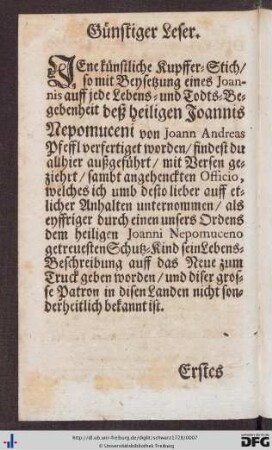 Günstiger Leser.
JEne künstliche Kupffer-Stich/
so mit Beysetzung eines Joan-
nis auff jede Lebens- und Todts-Be-
gebenheit deß heiligen Joannis
Nepomuceni von Joann Andreas
Pfeffl verfertiget worden/ findest du
allhier außgeführt/ mit Versen ge-
ziehrt/ sambt angehenckten Officio,
welches ich umb desto lieber auff et-
licher Anhalten unternommen/ als
eyffriger durch einen unsers Ordens
dem heiligen Joanni Nepomuceno
getreuesten Schutz-Kind sein Lebens-
Beschreibung auff das Neue zum
Truck geben worden/ und diser gros-
se Patron in disen Landen nicht son-
derheitlich bekannt ist.
Erstes
http://dl.ub.uni-freiburg.de/diglit/schwarz1728/0007
© Universitätsbibliothek Freiburg
DFG